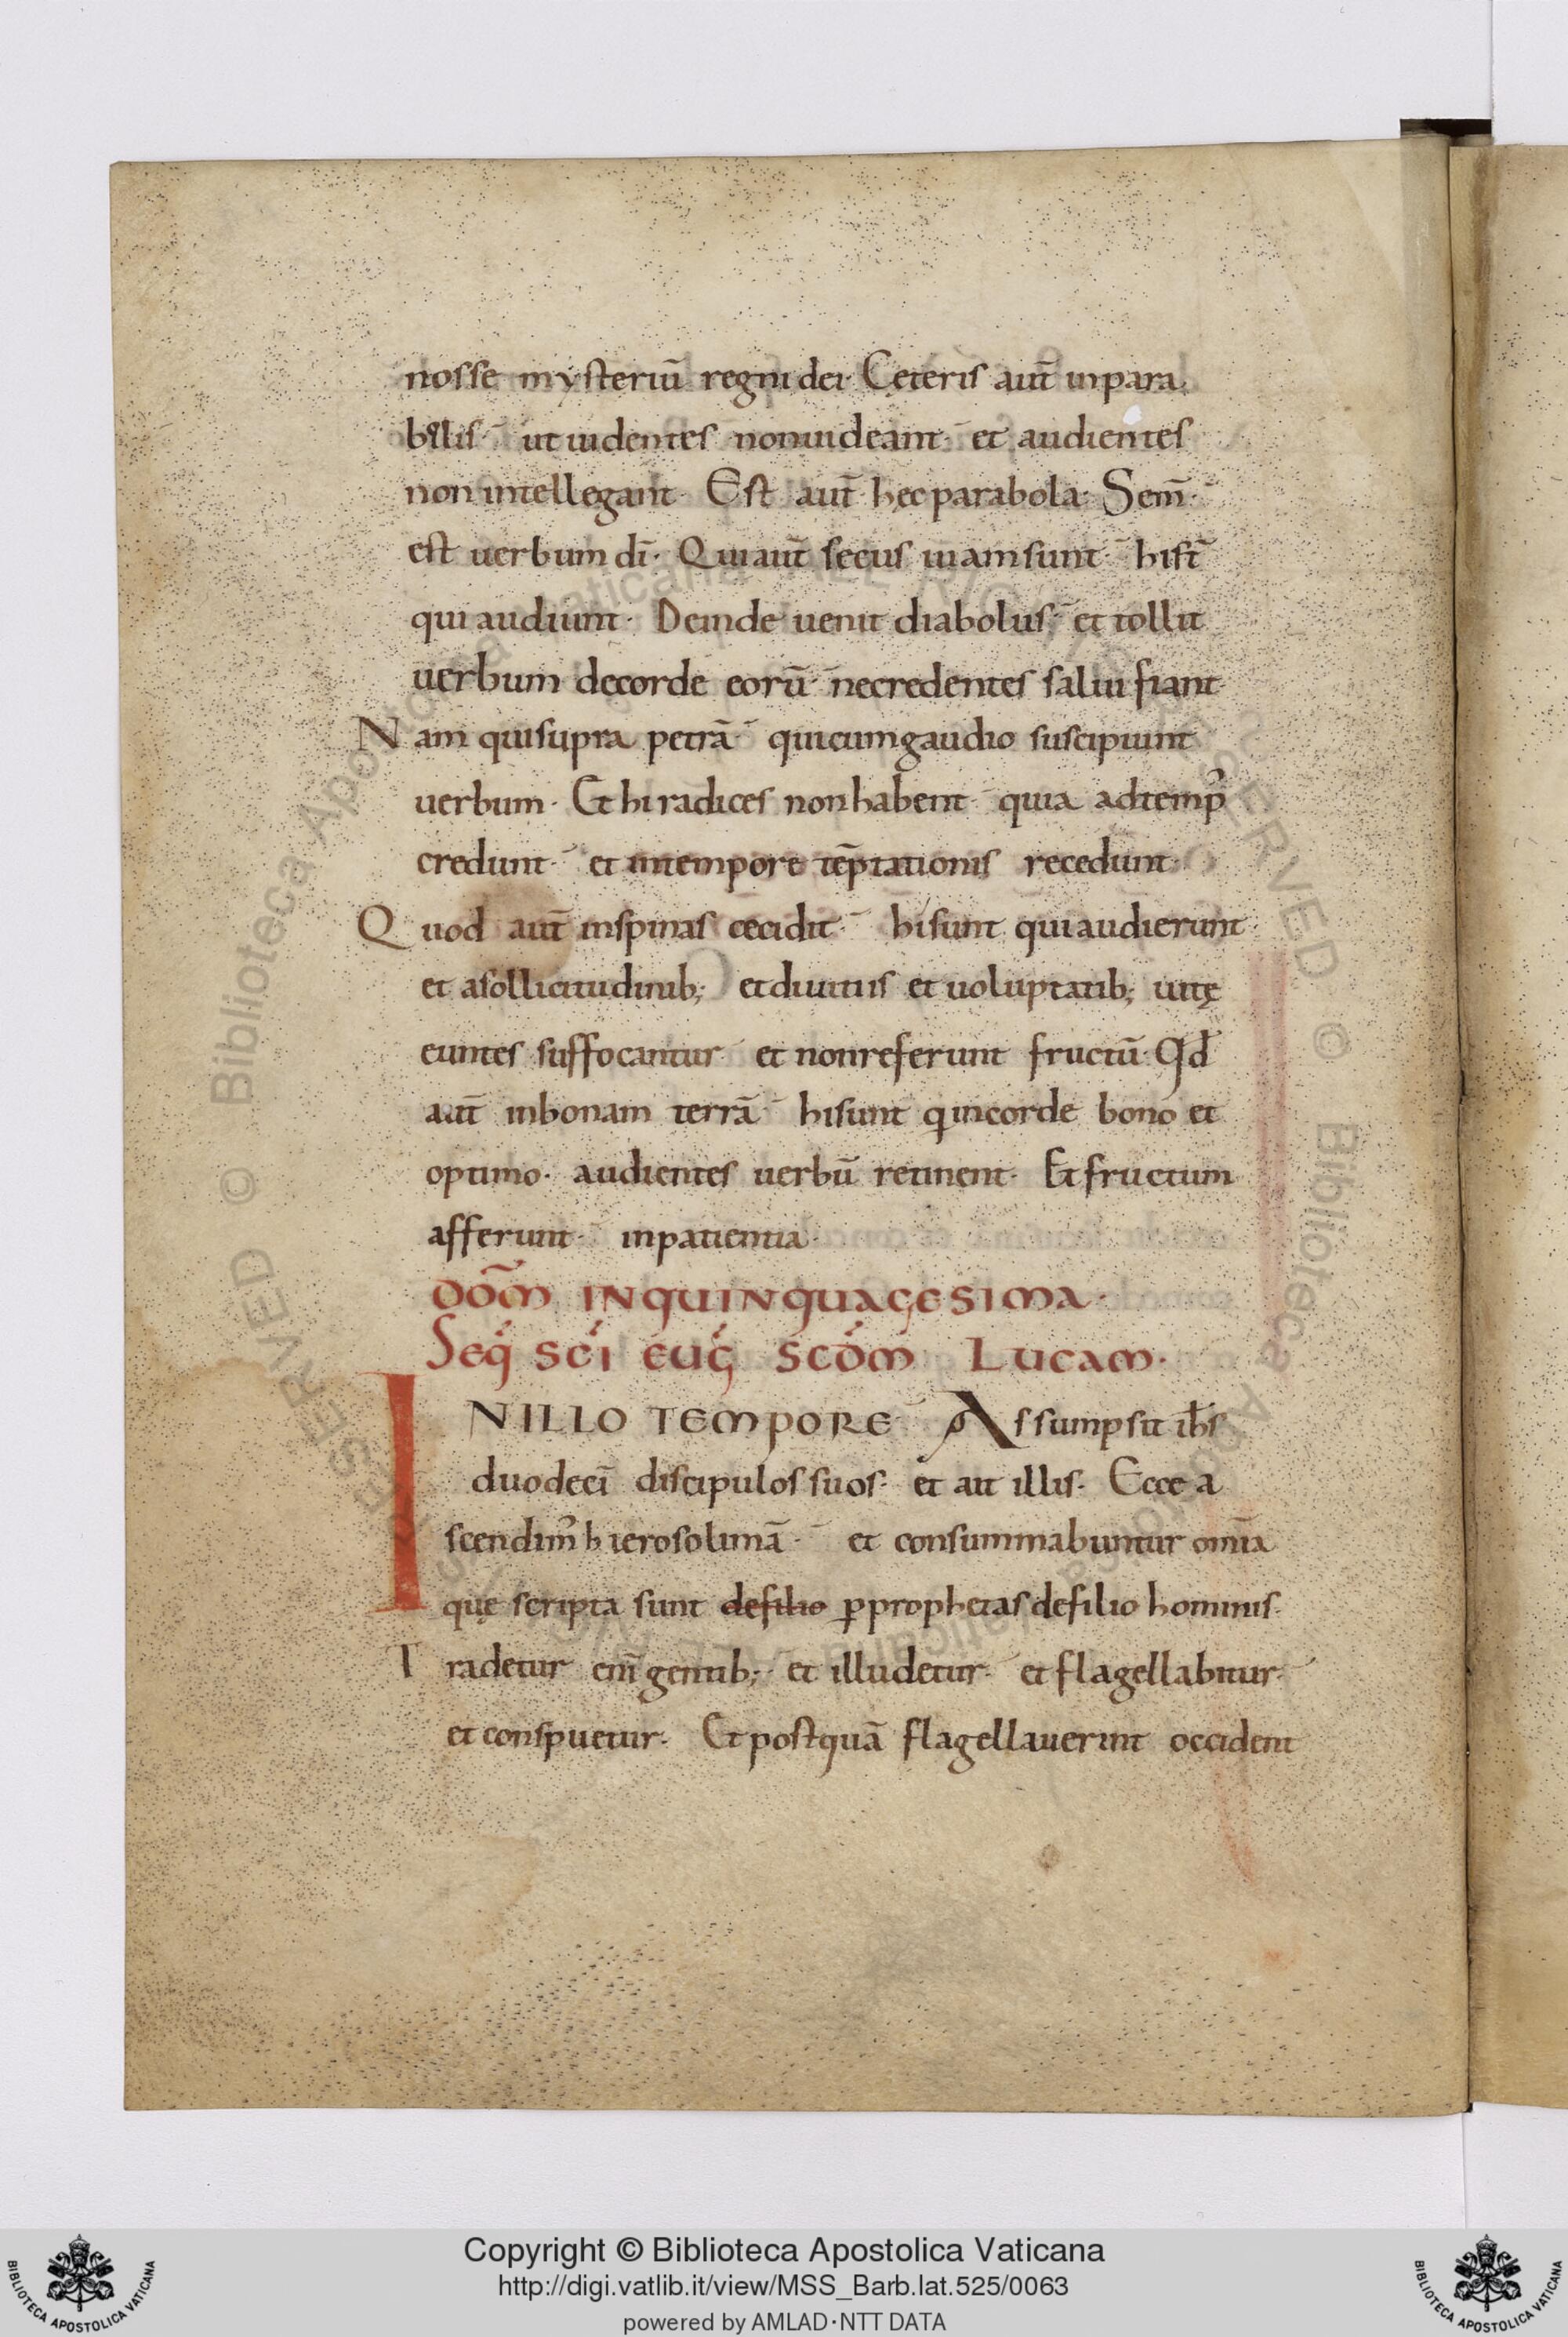 nosse mysteriū regni dei· Cęteris aut̄ inpara
bolis· ut uidentes non uideant· et audientes
non intellegant· Est aut̄ hęc parabola· Sem̄·
est uerbum dī· Qui aut̄ secus uiam sunt· hi st̄
qui audiunt· Deinde uenit diabolus· et tollit
uerbum decorde eorū· ne credentes salui fiant·
Nam qui supra petrā· qui cum gaudio suscipiunt
uerbum· Et hi radices non habent· quia ad temp᾽
credunt· et in tempore tēptationis recedunt·
Quod aut̄ in spinas cecidit· hi sunt qui audierunt·
et a sollicitudinib; et diuitiis et uoluptatib; uitę
euntes suffocantur· et non referunt fructū· Qd̄
aut̄ in bonam terrā· hi sunt qui in corde bono et
optimo· audientes uerbū retinent· Et fructum
afferunt· in patientia·
DOM̄ IN QUINQUAGESIMA·
Seq̄ sc̄i eug̅ scd̄m Lucam·
IN ILLO TEMPORE· Assumpsit ih̄s
duodecī discipulos suos· et ait illis· Ecce a
scendim᾽ hierosolimā· et consummabuntur om̄ia
quę scripta sunt defilio ꝑ prophetas de filio hominis·
Tradetur eni̅ gentib;· et illudetur· et flagellabitur·
et conspuetur· Et postquā flagellauerint occident
Copyright © Biblioteca Apostolica Vaticana
http://digi.vatlib.it/view/MSS_Barb.lat.525/0063
powered by AMLAD·NTT DATA
BIBLIOTECA APOSTOLICA VATICANA
BIBLIOTECA APOSTOLICA VATICANA